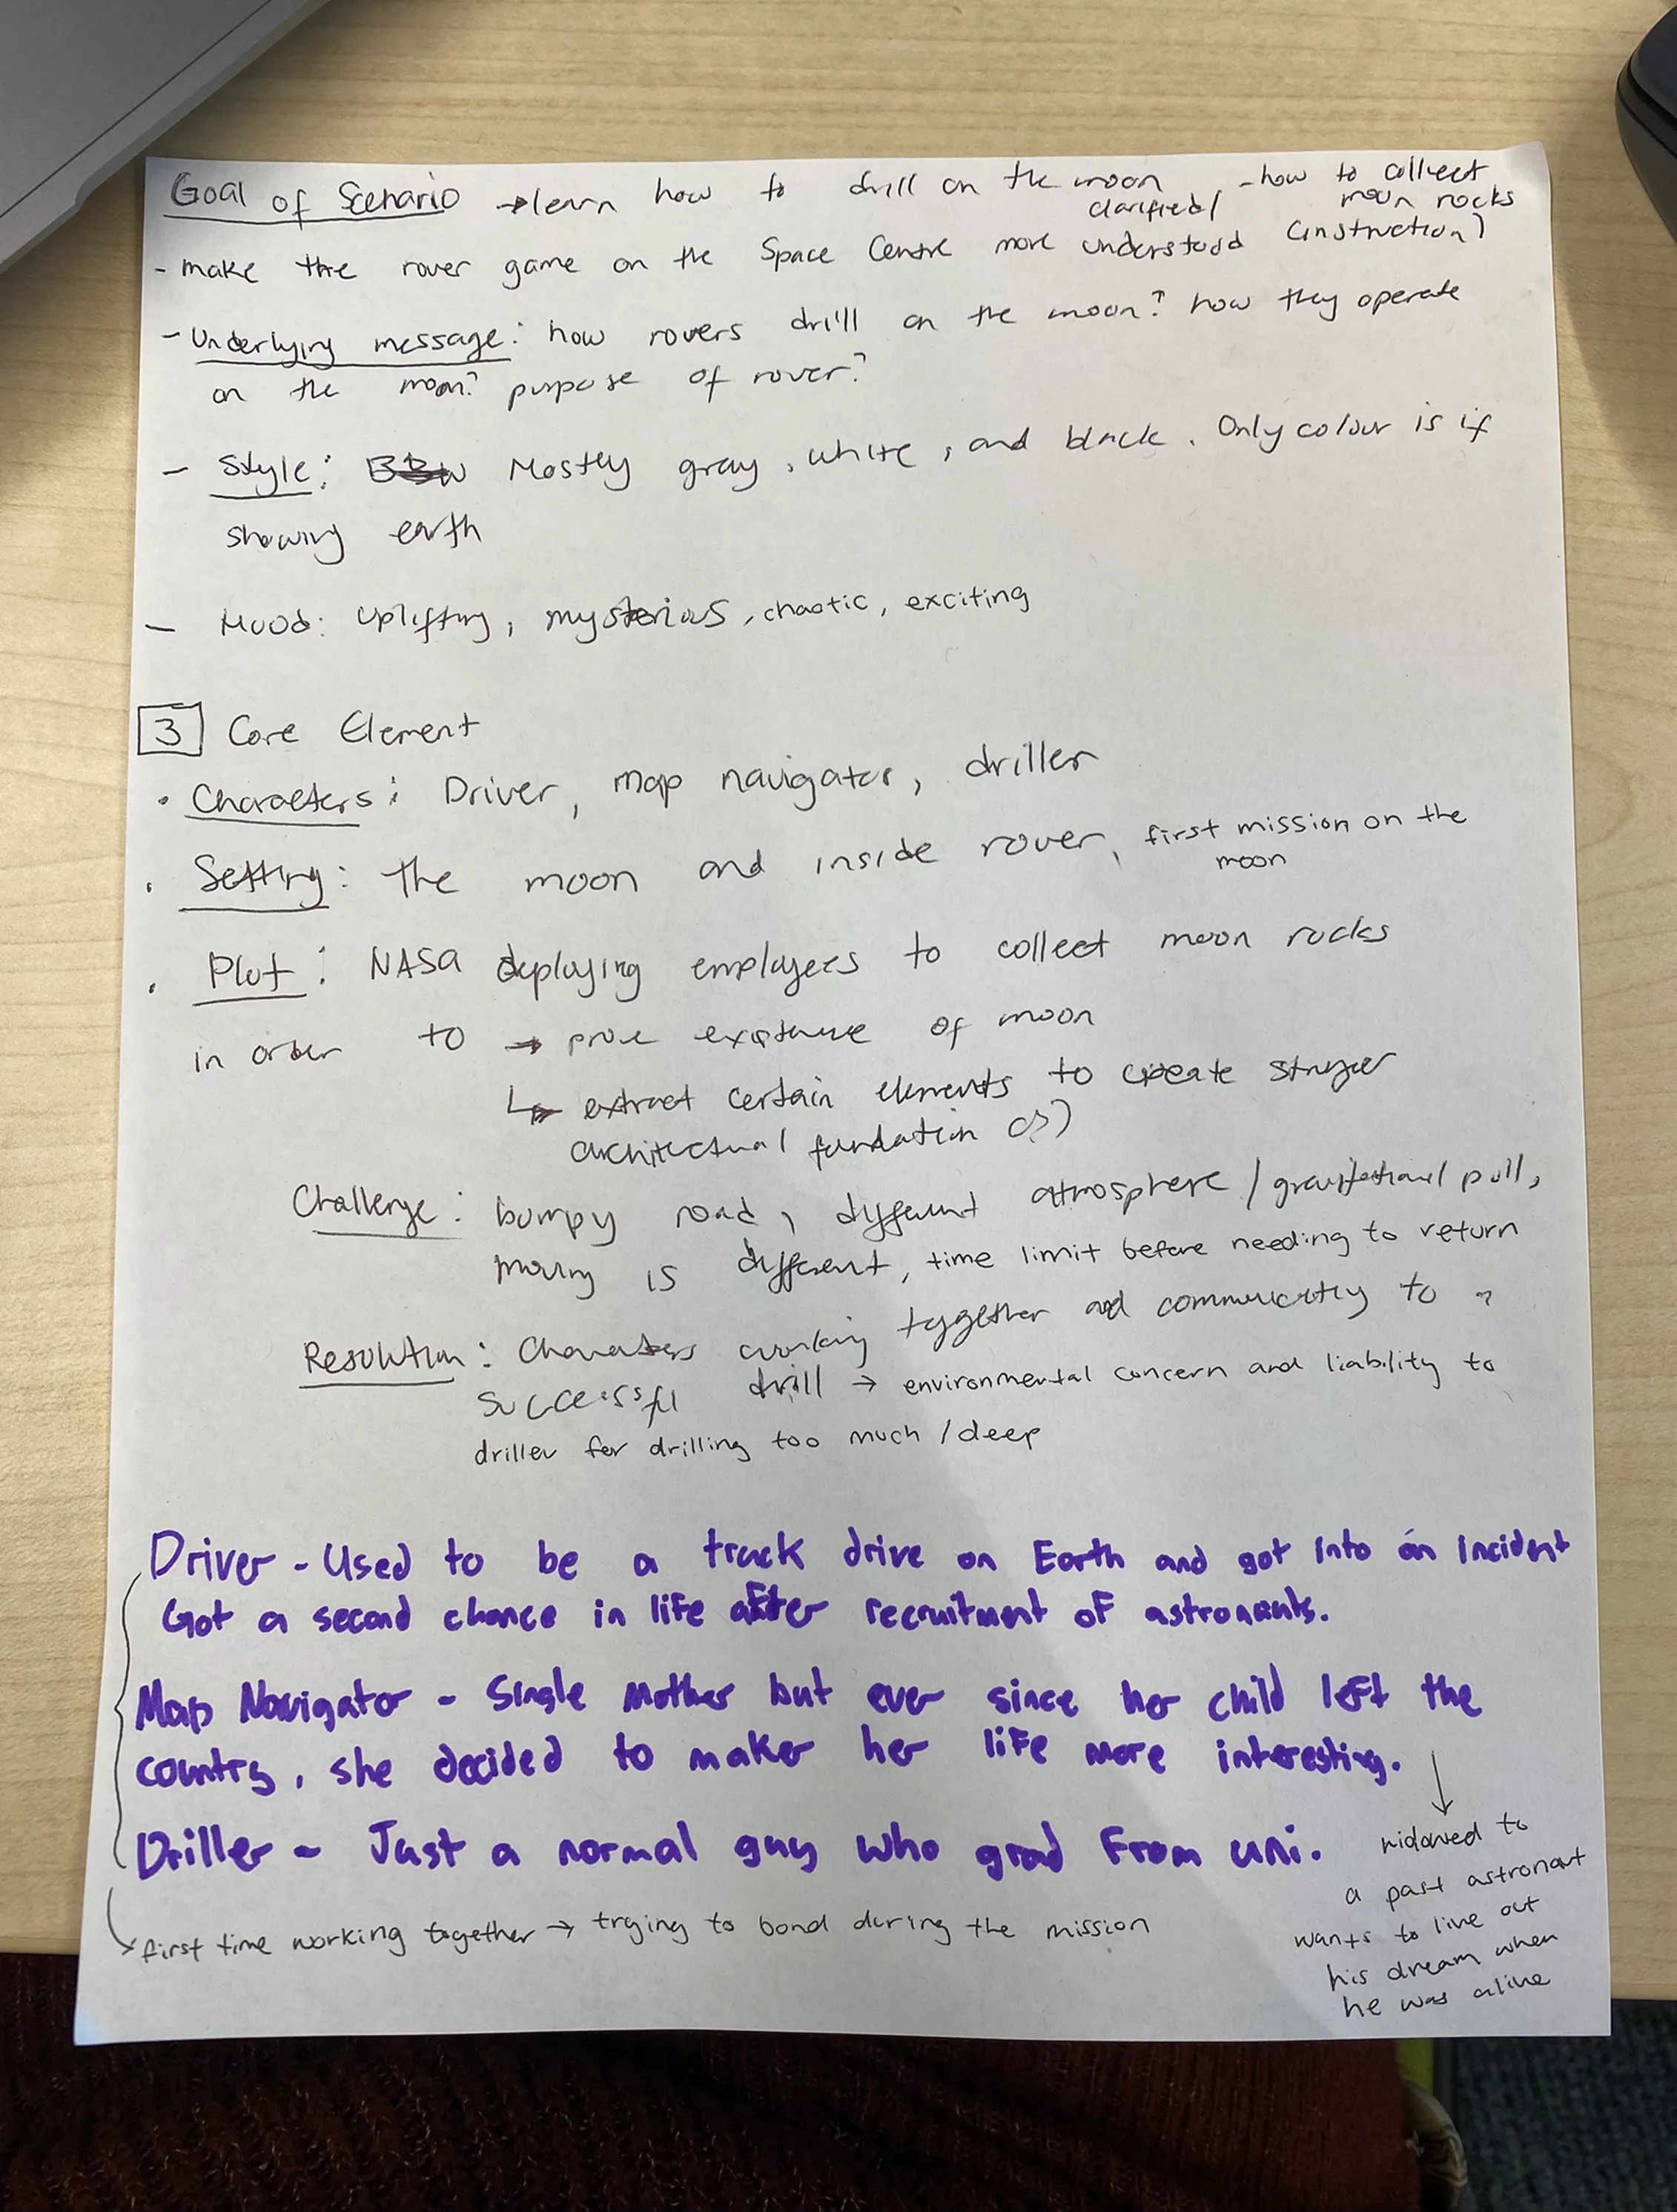 Goal of Scenario → learn how to drill on the moon - how to collect moon rocks
- make the rover game on the Space Centre more clarified/ understood (instruction)
- Underlying message: how rovers drill on the moon? how they operate
on the moon? purpose of rover?
- Style: Mostly gray, white, and black. Only colour is if
showing earth
- Mood: Uplifting, mysterious, chaotic, exciting
3 Core Element
• Characters: Driver, map navigator, driller
• Setting: the moon and inside rover, first mission on the
moon
• Plot: NASA deploying employees to collect moon rocks
in order to → prove existence of moon
↳ extract certain elements to create stronger
architectural fundation (?)
Challenge: bumpy road, different atmosphere / gravitational pull,
moving is different, time limit before needing to return
Resolution: Characters working together and communicating to
successful drill → environmental concern and liability to
driller for drilling too much / deep
Driver - Used to be a track drive on Earth and got into an incident
Got a second chance in life after recruitment of astronauts.
Map Navigator - Single mother but ever since her child left the
country, she decided to maker her life more interesting.
↓
Driller - Just a normal guy who grad from uni.
widowed to
a past astronaut
wants to live out
his dream when
he was alive
first time working together → trying to bond during the mission